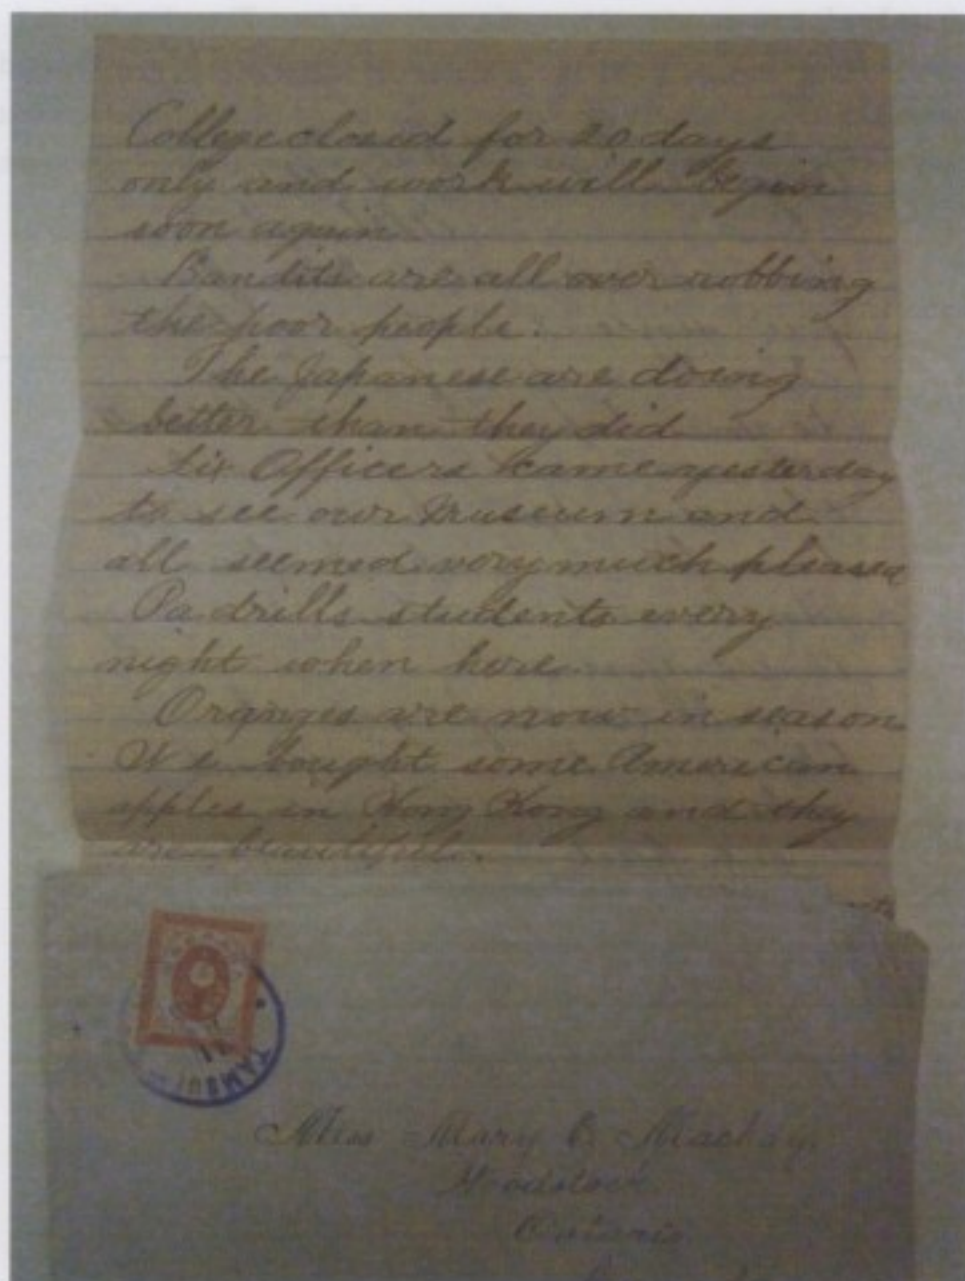 College closed for 20 days
only and work will begin
soon again
Bandits are all over robbing
the poor people.
The Japanese are doing
better than they did
Six Officers came yesterday
to see our Museum and
all seemed very much pleased
Pa drills students every
night when here
Oranges are now in season
We bought some American
apples in Hong Kong and they
are beautiful.
TAMSUI
Miss Mary Mackay.
Woodstock
Ontario